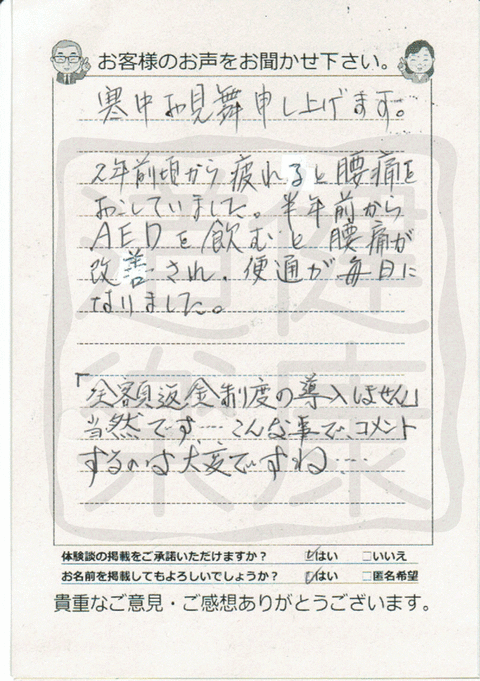 お客様のお声をお聞かせ下さい。
寒中お見舞申し上げます。
2年前頃から疲れると腰痛を
おこしていました。半年前から
AEDを飲むと腰痛が
改善され、便通が毎日に
なりました。
「全額返金制度の導入はせん」
当然です…こんな事で、コメント
するのは大変ですね…
体験談の掲載をご承諾いただけますか? はい いいえ
お名前を掲載してもよろしいでしょうか? はい 匿名希望
貴重なご意見・ご感想ありがとうございます。
道健
楽康